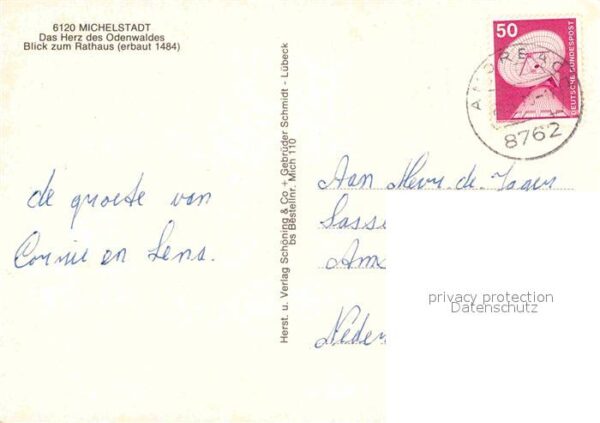 6120 MICHELSTADT
Das Herz des Odenwaldes
Blick zum Rathaus (erbaut 1484)
de groete van
Corrie en Lena.
Herst. u. Verlag Schöning & Co + Gebrüder Schmidt - Lübeck
bs Bestellnr. Mich 110
50
DEUTSCHE BUNDESPOST
8762
Aan Mevr. de Jager
Sasse
Ams
Neder
privacy protection
Datenschutz